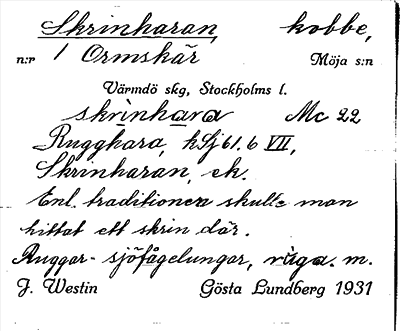 Skrinharan, kobbe,
n:r 1 Ormskär Möja s:n
Värmdö skg, Stockholms l.
skrinhara Mc 22
Rugghara, hSj 61.6 VII,
Skrinharan, ek.
Enl. traditionen skulle man
hittat ett skrin där.
Ruggar - sjöfågelungar, m.
J. Westin Gösta Lundberg 1931